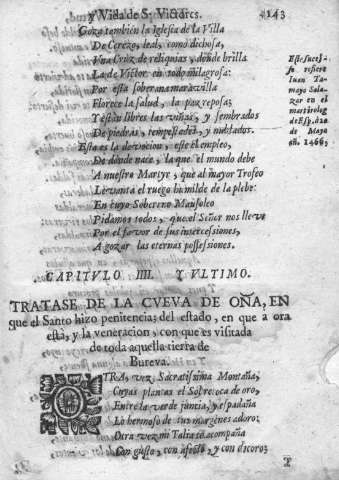 y Vida de S. Victores. 143
Goza también la Iglesia de la Villa
De Cerezo, leal, como dichosa,
Vna Cruz de reliquias, donde brilla
La de Victor en todo milagrosa:
Por esta soberana marauilla
Florece la salud, la paz reposa;
Y están libres las viñas, y sembrados
De piedras, tempestades, y nublados.
Esta es la deuocion, este el empleo,
De donde nace, la que el mundo debe
A nuestro Martyr, que al mayor Trofeo
Leuanta el ruego humilde de la plebe:
En cuyo Soberano Mausoleo
Pidamos todos, que el Señor nos lleve
Por el fauor de sus intercessiones,
A gozar las eternas possessiones.
Este sucesso
refiere
Iuan Ta-
mayo Sala-
zar en el
martirolog
de Esp. dia
de Mayo
an. 1466.
CAPITVLO IIII. Y VLTIMO.
TRATASE DE LA CVEVA DE OÑA, EN
que el Santo hizo penitencia; del estado, en que a ora
està, y la veneracion, con que es visitada
de toda aquella tierra de
Bureva.
OTRA vez, Sacratissima Montaña,
Cuyas plantas el Sobre oca de oro,
Entre la verde juncia, y espadaña
Lo hermoso de tus margenes adoro:
Otra vez mi Talia te acompaña
Con gusto, con afecto, y con decoro;
T